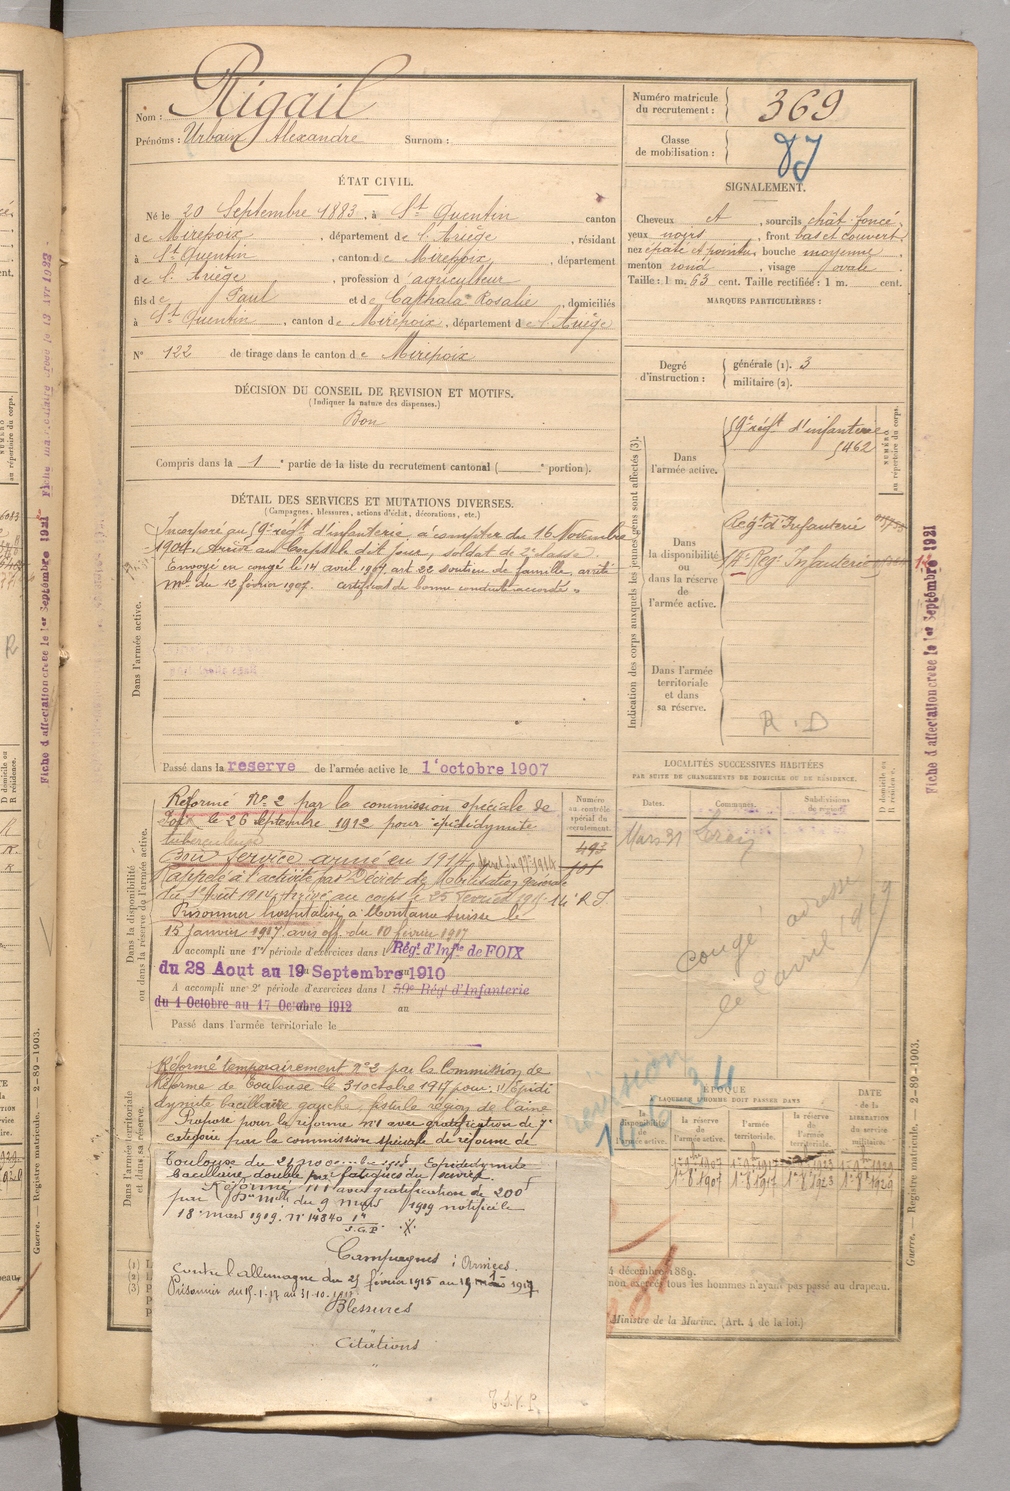 Nom : Rigail
Prénoms : Urbain Alexandre Surnom :
Numéro matricule du recrutement : 369
Classe de mobilisation :
ÉTAT CIVIL.
Né le 20 Septembre 1883, à St Quentin canton
de Mirepoix, département de l'Ariège, résidant
à St Quentin, canton de Mirepoix, département
de l'Ariège, profession d'agriculteur
fils de Paul et de Rosalie, domiciliés
à St Quentin, canton de Mirepoix, département de l'Ariège
N° 122 de tirage dans le canton de Mirepoix
SIGNALEMENT.
Cheveux et, sourcils chât. foncé
yeux noirs, front bas et couvert
nez épaté et pointu, bouche moyenne
menton rond, visage ovale
Taille : 1 m. 63 cent. Taille rectifiée : 1 m. cent.
MARQUES PARTICULIÈRES :
Degré d'instruction : générale (1). 3
militaire (2).
DÉCISION DU CONSEIL DE REVISION ET MOTIFS.
(Indiquer la nature des dispenses.)
Bon
Compris dans la 1e partie de la liste du recrutement cantonal ( e portion).
DÉTAIL DES SERVICES ET MUTATIONS DIVERSES.
(Campagnes, blessures, actions d'éclat, décorations, etc.)
Dans l'armée active.
Incorporé au 59e régt d'infanterie à compter du 16 Novembre
1904. Arrivé au corps le dit jour, soldat de 2e classe.
Envoyé en congé le 14 avril 1907 art 22 soutien de famille, arrêté
mel du 12 février 1907. certificat de bonne conduite accordé
Passé dans la reserve de l'armée active le 1 octobre 1907
Indication des corps auxquels les jeunes gens sont affectés (3).
Dans l'armée active.
59e régt d'infanterie
5462
NUMÉRO au répertoire du corps.
Dans la disponibilité ou dans la réserve de l'armée active.
Régt d'Infanterie
14e Regt Infanterie
Dans l'armée territoriale et dans sa réserve.
R. D
Fiche d'affectation créée le 1er Septembre 1921
LOCALITÉS SUCCESSIVES HABITÉES
PAR SUITE DE CHANGEMENTS DE DOMICILE OU DE RÉSIDENCE.
Dates. Communes. Subdivisions de région. D domicile ou R résidence.
Mars 31
congé adressé
le 2 avril 1919
Dans la disponibilité ou dans la réserve de l'armée active.
Numéro au contrôle spécial du recrutement.
Réformé N° 2 par la commission spéciale de
Foix le 26 Septembre 1912 pour épididymite
tuberculeuse
Bon Service armé en 1914
Rappelé à l'activité par Décret de Mobilisation générale
du 1er Août 1914, Arrivé au corps le 25 février 1915 14e R I
Prisonnier hospitalisé à Montana Suisse le
15 janvier 1917 avis off. du 10 février 1917
A accompli une 1re période d'exercices dans l Régt d'Infie de FOIX
du 28 Aout au 19 Septembre 1910
A accompli une 2e période d'exercices dans l 59e Régt d'Infanterie
du 1 Octobre au 17 Octobre 1912 au
Passé dans l'armée territoriale le
Dans l'armée territoriale et dans sa réserve.
Réformé temporairement n° 2 par la Commission de
Réforme de Toulouse le 31 octobre 1917 pour : 1/ Epidi
dymite bacillaire gauche, fistule région de l'aine
Proposé pour la réforme n°1 avec gratification de 7e
catégorie par la commission spéciale de réforme de
Toulouse du 21 novembre Epididymite
bacillaire double par fatigues du service.
Réformé n°1 avec gratification de 200f
par Don Melle du 9 mars 1919 notifiée
18 mars 1919. N° 14840
Campagnes : Armées.
contre l'allemagne du 25 février 1915 au 15 1917
Prisonnier du 15-1-17 au 31-10-
Blessures
Citations
T.S.V.P.
révision
ÉPOQUE
À LAQUELLE L'HOMME DOIT PASSER DANS
la disponibilité de l'armée active. la réserve de l'armée active. l'armée territoriale. la réserve de l'armée territoriale.
DATE de la LIBÉRATION du service militaire.
4 décembre 1889.
tous les hommes n'ayant pas passé au drapeau.
Ministre de la Marine. (Art. 4 de la loi.)
Guerre. — Registre matricule. — 2-89-1903.